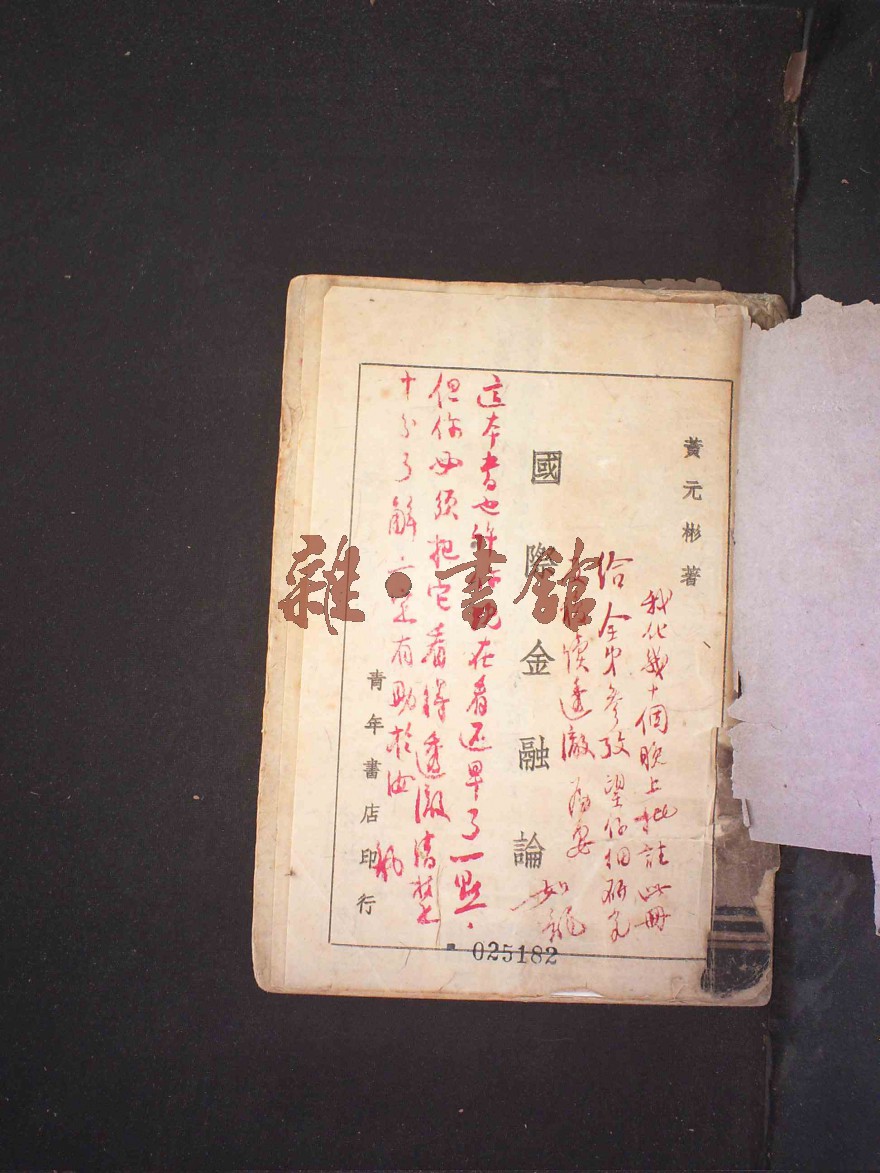 黃元彬著
我化幾十個晚上批註此冊
給全弟參攷望仔細研究
讀透澈為要
國際金融論
這本書也許你現在看还早了一點.
但你必須把它看得透澈清楚
十分了解一定有助於汝
青年書店印行
025182
雜·書館